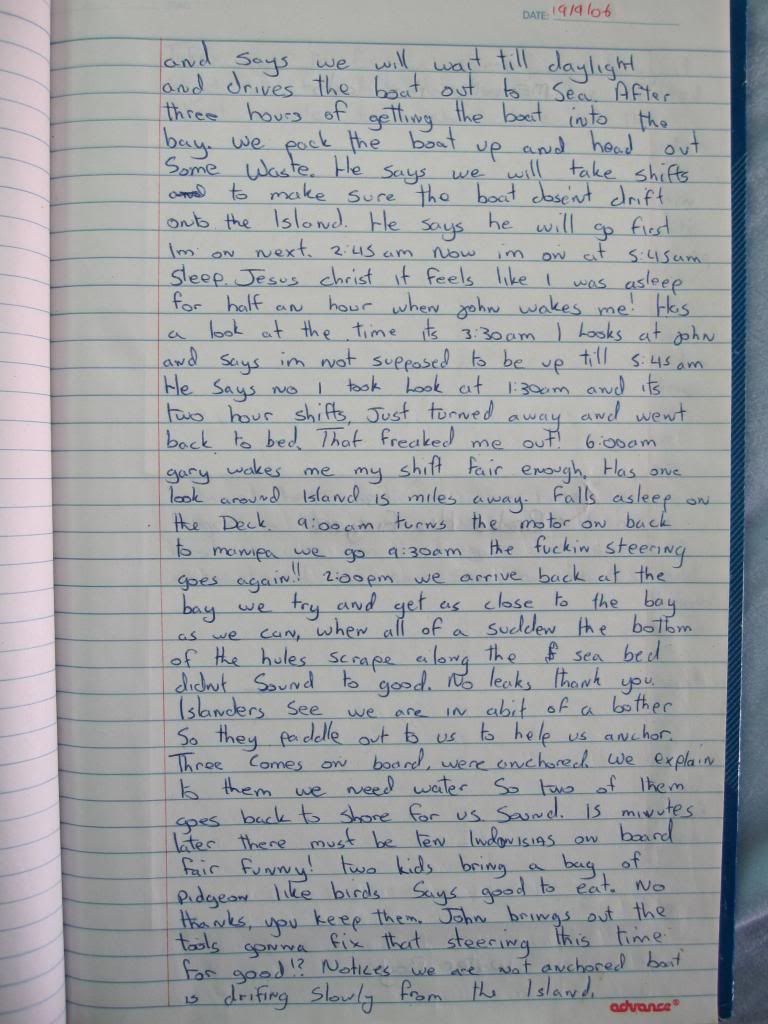 DATE: 19/9/06
and says we will wait till daylight
and drives the boat out to Sea. After
three hours of getting the boat into the
bay. we pack the boat up and head out
Some Waste. He says we will take shifts
to make sure the boat dosent drift
onto the Island. He says he will go first
Im on next. 2:45 am Now im on at 5:45am
Sleep. Jesus christ it feels like I was asleep
for half an hour when john wakes me! Has
a look at the time its 3:30am I Looks at john
and says im not supposed to be up till 5:45 am
He Says no I took Look at 1:30am and its
two hour shifts, Just turned away and went
back to bed. That freaked me out! 6:00am
gary wakes me my shift fair enough. Has one
look around Island is miles away. Falls asleep on
the Deck. 9:00am turns the motor on back
to manipa we go 9:30am the fuckin steering
goes again!! 2:00pm we arrive back at the
bay we try and get as close to the bay
as we can, when all of a sudden the bottom
of the hules scrape along the sea bed
didnt Sound to good. No leaks thank you.
Islanders See we are in abit of a bother
So they paddle out to us to help us anchor.
Three comes on board, were anchored we explain
to them we need water So two of them
goes back to shore for us. Sound. 15 minutes
later there must be ten Indonisias on board
fair funny! two kids bring a bag of
Pidgeon like birds Says good to eat. No
thanks, you keep them. John brings out the
tools gonna fix that steering this time
for good!? Notices we are not anchored boat
is drifing slowly from the Island.
advance®